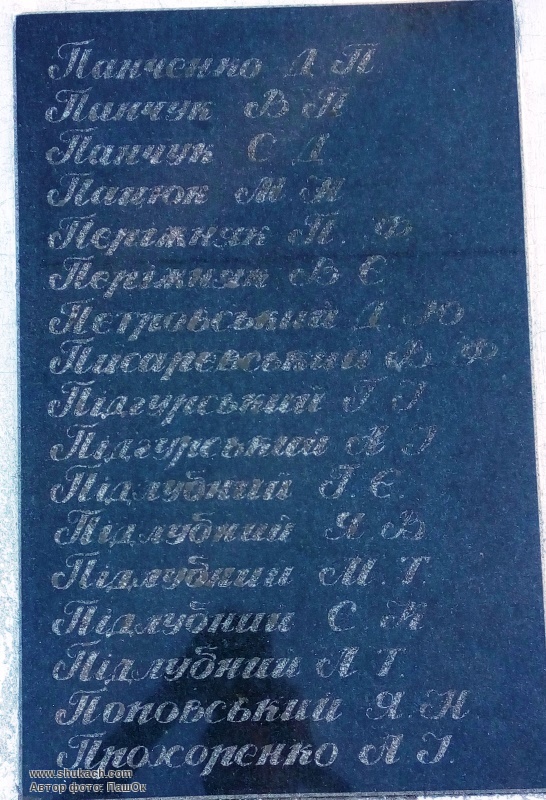 Панченко Д. П.
Панчук В. П.
Панчук С. Д.
Панцюк М. Н.
Періжняк П. Ф.
Періжняк В. Є.
Петровський Д. Ю.
Писаревський В. Ф.
Підгурський Г. І.
Підгурський А. І.
Підлубний І. Є.
Підлубний Я. В.
Підлубний М. Т.
Підлубний С. Н.
Підлубний А. Т.
Поповський Я. Н.
Прохоренко А. І.
www.shukach.com
Автор фото: ПашОк